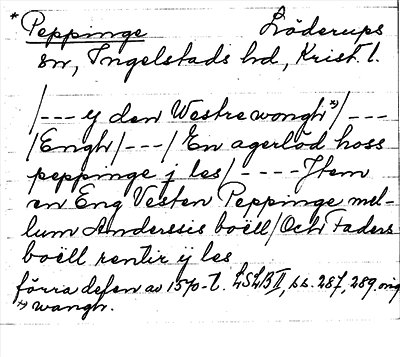 *Peppinge Löderups
sn, Ingelstads hd, Krist. l.
/--- y den Westre wongh *)/---
/Engh/---/ En agerlöd hoss
peppinge j les/ ---- Jtem
en Eng Vesten Peppinge mel-
lum Anderssis boëll/Och Faders
boëll rentir ÿ les
förra delen av 1570-t. LSLB II, s.s. 287, 289. orig
*) wangh.